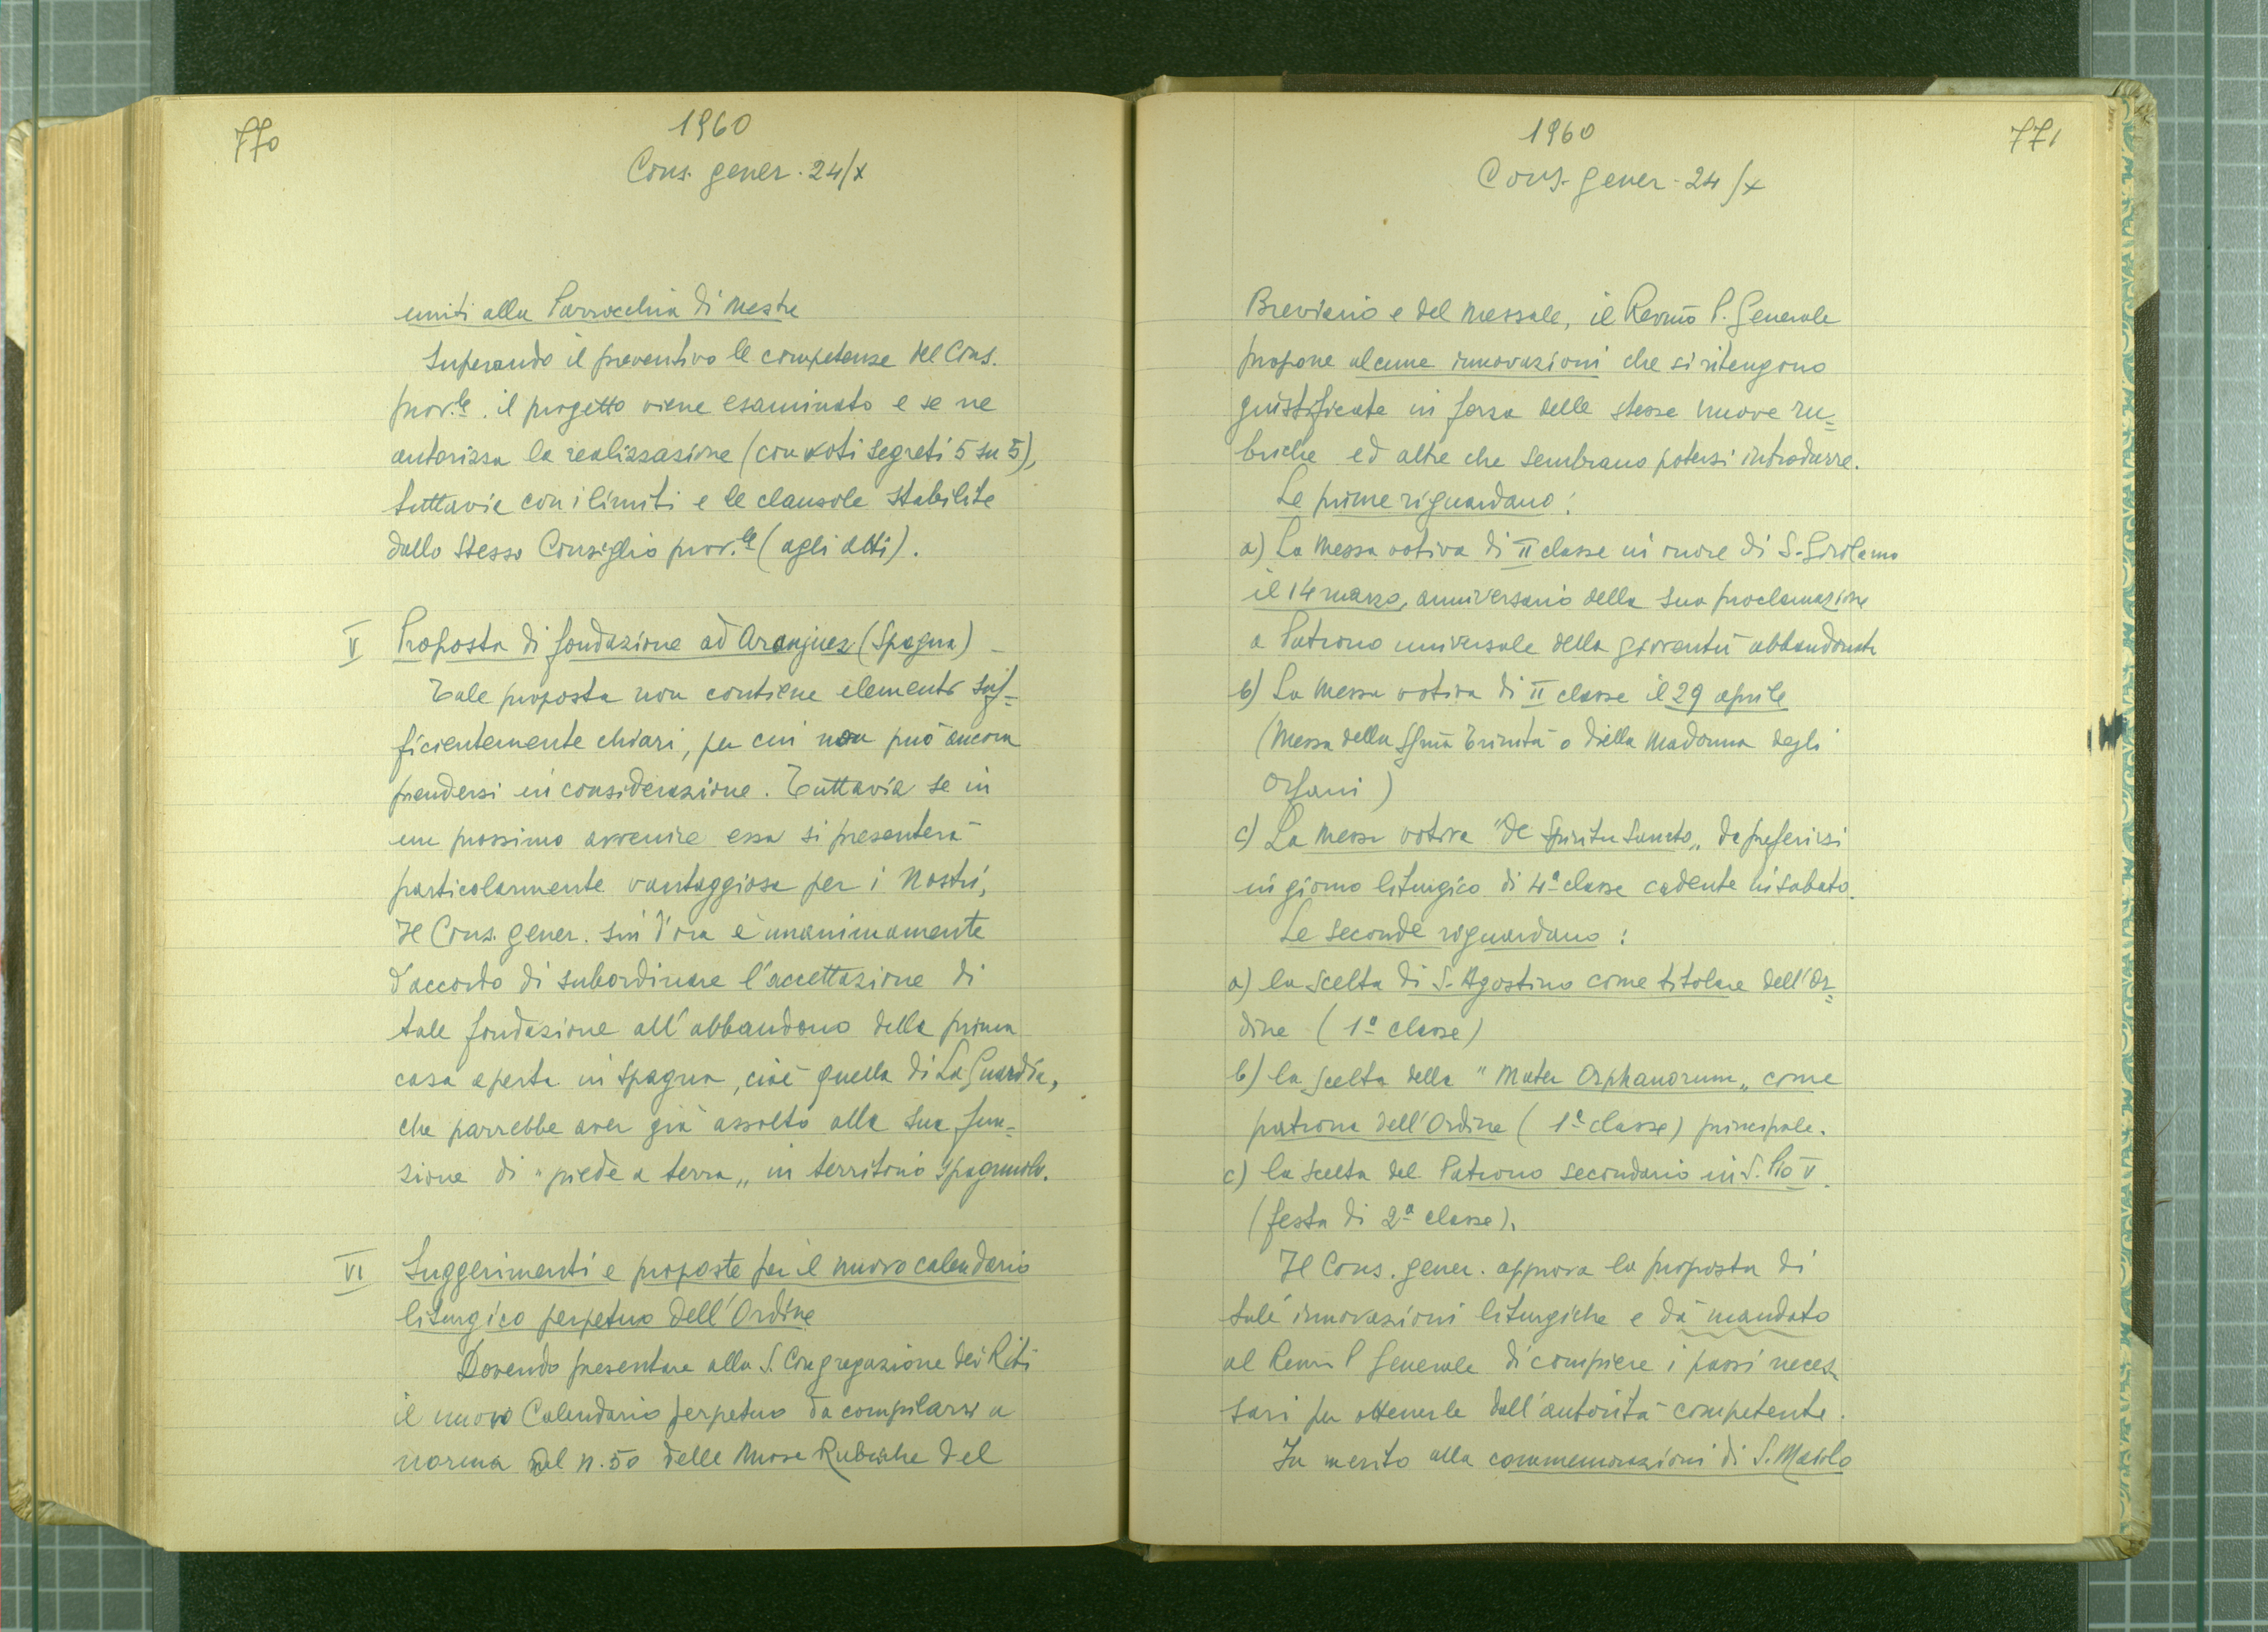 770
1960
Cons. gener. 24/X
uniti alla Parrocchia di Mestre
Superando il preventivo le competenze del Cons.
prov.le. il progetto viene esaminato e se ne
autorizza la realizzazione (con voti segreti 5 su 5),
tuttavia con i limiti e le clausole stabilite
dallo stesso Consiglio prov.le (agli atti).
V Proposta di fondazione ad Aranjuez (Spagna) -
Tale proposta non contiene elementi suf=
ficientemente chiari, per cui non può ancora
prendersi in considerazione. Tuttavia se in
un prossimo avvenire essa si presenterà
particolarmente vantaggiosa per i Nostri,
Il Cons. gener. sin d'ora è unanimamente
d'accordo di subordinare l'accettazione di
tale fondazione all'abbandono della prima
casa aperta in Spagna, cioè quella di La Guardia,
che parrebbe aver già assolto alla sua fun=
zione di "piede a terra" in territorio spagnuolo.
VI Suggerimenti e proposte per il nuovo calendario
liturgico perpetuo dell'Ordine
Dovendo presentare alla S. Congregazione dei Riti
il nuovo Calendario perpetuo da compilarsi a
norma del n. 50 delle Nuove Rubriche del
771
1960
Cons. gener. 24/X
Breviario e del Messale, il Rev.mo P. Generale
propone alcune innovazioni che si ritengono
giustificate in forza delle stesse nuove ru=
briche ed altre che sembrano potersi introdurre.
Le prime riguardano:
a) La Messa votiva di II classe in onore di S. Girolamo
il 14 marzo, anniversario della sua proclamazione
a Patrono universale della gioventù abbandonata
b) La Messa votiva di II classe il 29 aprile
(Messa della SS.ma Trinità o della Madonna degli
Orfani)
c) La Messa votiva "de Spiritu Sancto" da preferirsi
in giorno liturgico di 4ª classe cadente in sabato.
Le seconde riguardano:
a) la scelta di S. Agostino come titolare dell'Or=
dine (1ª classe)
b) la scelta della "Mater Orphanorum" come
patrona dell'Ordine (1ª classe) principale.
c) la scelta del Patrono secondario in S. Pio V.
(festa di 2ª classe).
Il Cons. gener. approva la proposta di
tali innovazioni liturgiche e dà mandato
al Rev.mo P. Generale di compiere i passi neces
sari per ottenerle dall'autorità competente.
In merito alla commemorazioni di S. Maiolo